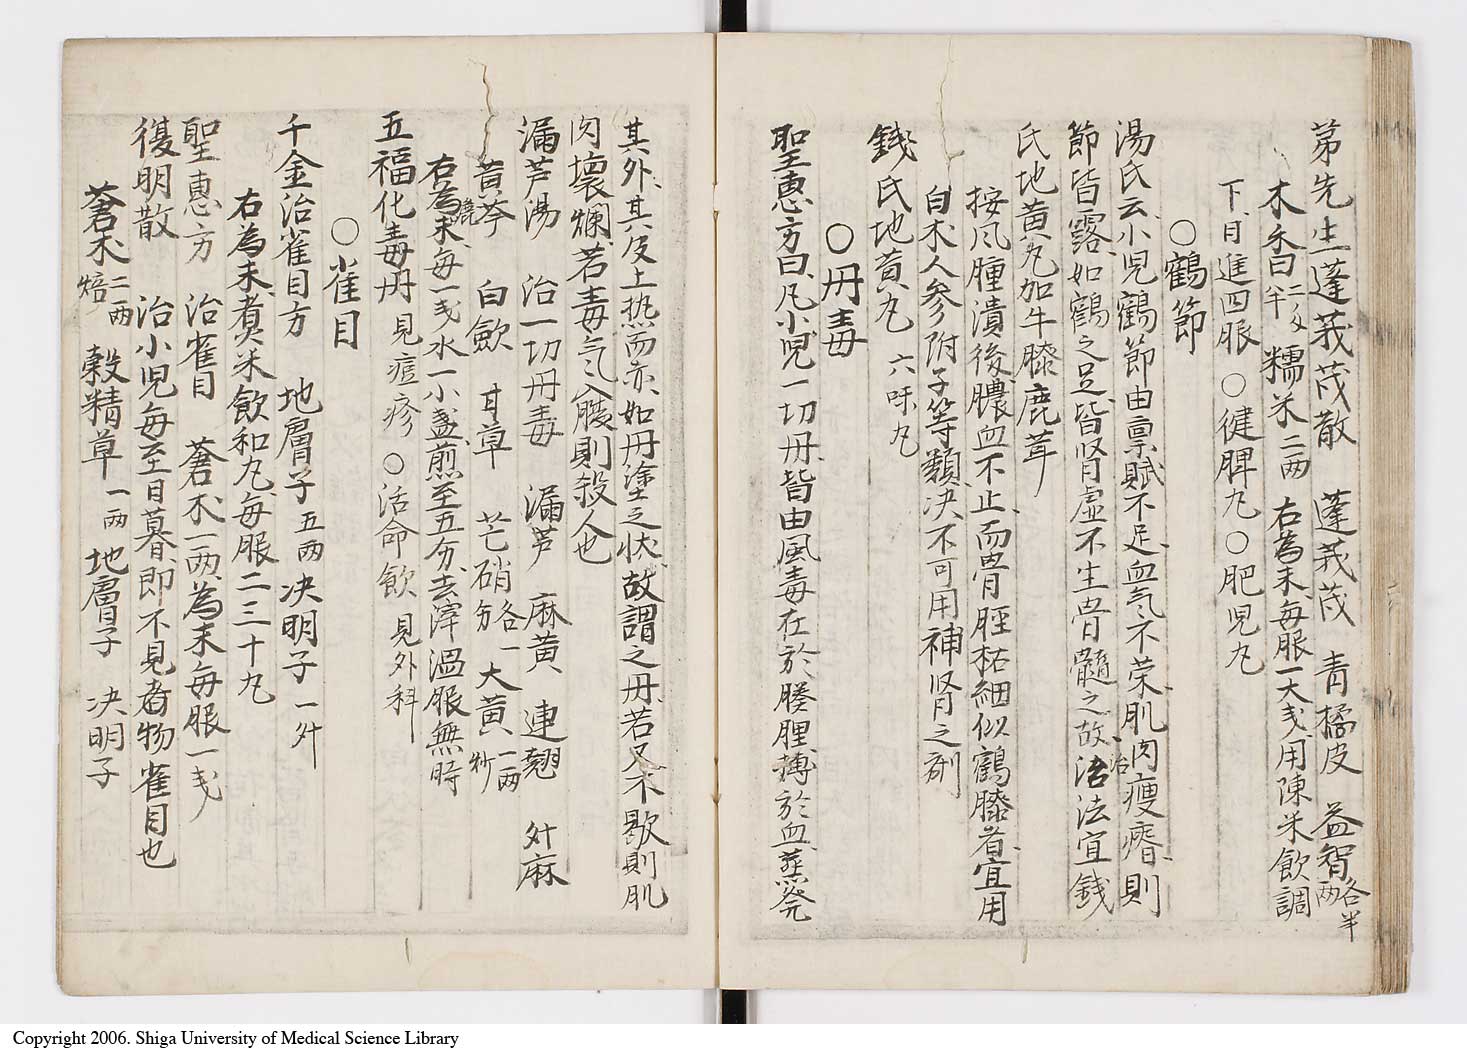 第先生蓬莪茂散　蓬莪茂　青橘皮　益智各半両
木香二戔半　糯米二両　右為末毎服一大戔用陳米飲調
下日進四服　○健脾丸○肥児丸
○鶴節
湯氏云小児鶴節由禀賦不足血气不荣肌肉瘦瘠則
節皆露如鶴之足皆肾虚不生骨髓之故治法宜錢
氏地黄丸加牛膝鹿茸
按风腫潰後膿血不止而骨脛枯細似鶴膝者宜用
白朮人参附子等類决不可用補肾之剤
錢氏地黄丸　六味丸
○丹毒
聖惠方曰凡小児一切丹皆由風毒在於腠理搏於血蒸発
其外其皮上热而赤如丹塗之状故謂之丹若又不歇則肌
肉壊爛若毒气入腹則殺人也
漏芦湯　治一切丹毒　漏芦　麻黄　連翹　升麻
黄芩　白歛　甘草　芒硝各一分　大黄一両炒
右為麁末毎一戔水一小盞煎至五分去滓溫服無時
五福化毒丹　見痘疹　○活命飲　見外科
○雀目
千金治雀目方　地膚子五両　决明子一升
右為末煮米飲和丸毎服二三十丸
聖惠方　治雀目　蒼朮一両為末毎服一戔
復明散　治小児每至日暮即不見者物雀目也
蒼朮二両焙　榖精草一両　地膚子　决明子
Copyright 2006. Shiga University of Medical Science Library